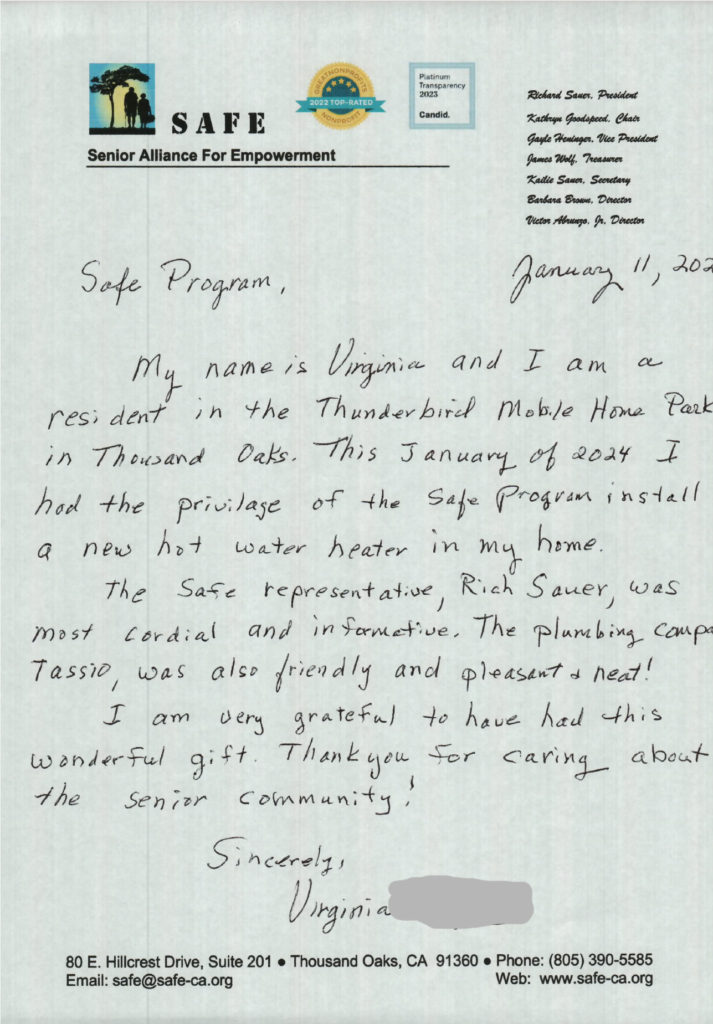 SAFE
Senior Alliance For Empowerment
GREATNONPROFITS
2022 TOP-RATED
NONPROFIT
Platinum
Transparency
2023
Candid.
Richard Sauer, President
Kathryn Goodspeed, Chair
Gayle Heninger, Vice President
James Wolf, Treasurer
Kailie Sauer, Secretary
Barbara Brown, Director
Victor Abrunzo, Jr. Director
January 11, 202
Safe Program,
My name is Virginia and I am a
resident in the Thunderbird Mobile Home Park
in Thousand Oaks. This January of 2024 I
had the privilage of the Safe Program install
a new hot water heater in my home.
The Safe representative, Rich Sauer, was
most cordial and informative. The plumbing compa
Tassio, was also friendly and pleasant & neat!
I am very grateful to have had this
wonderful gift. Thank you for caring about
the senior community!
Sincerely,
Virginia
80 E. Hillcrest Drive, Suite 201 ● Thousand Oaks, CA 91360 ● Phone: (805) 390-5585
Email: safe@safe-ca.org Web: www.safe-ca.org